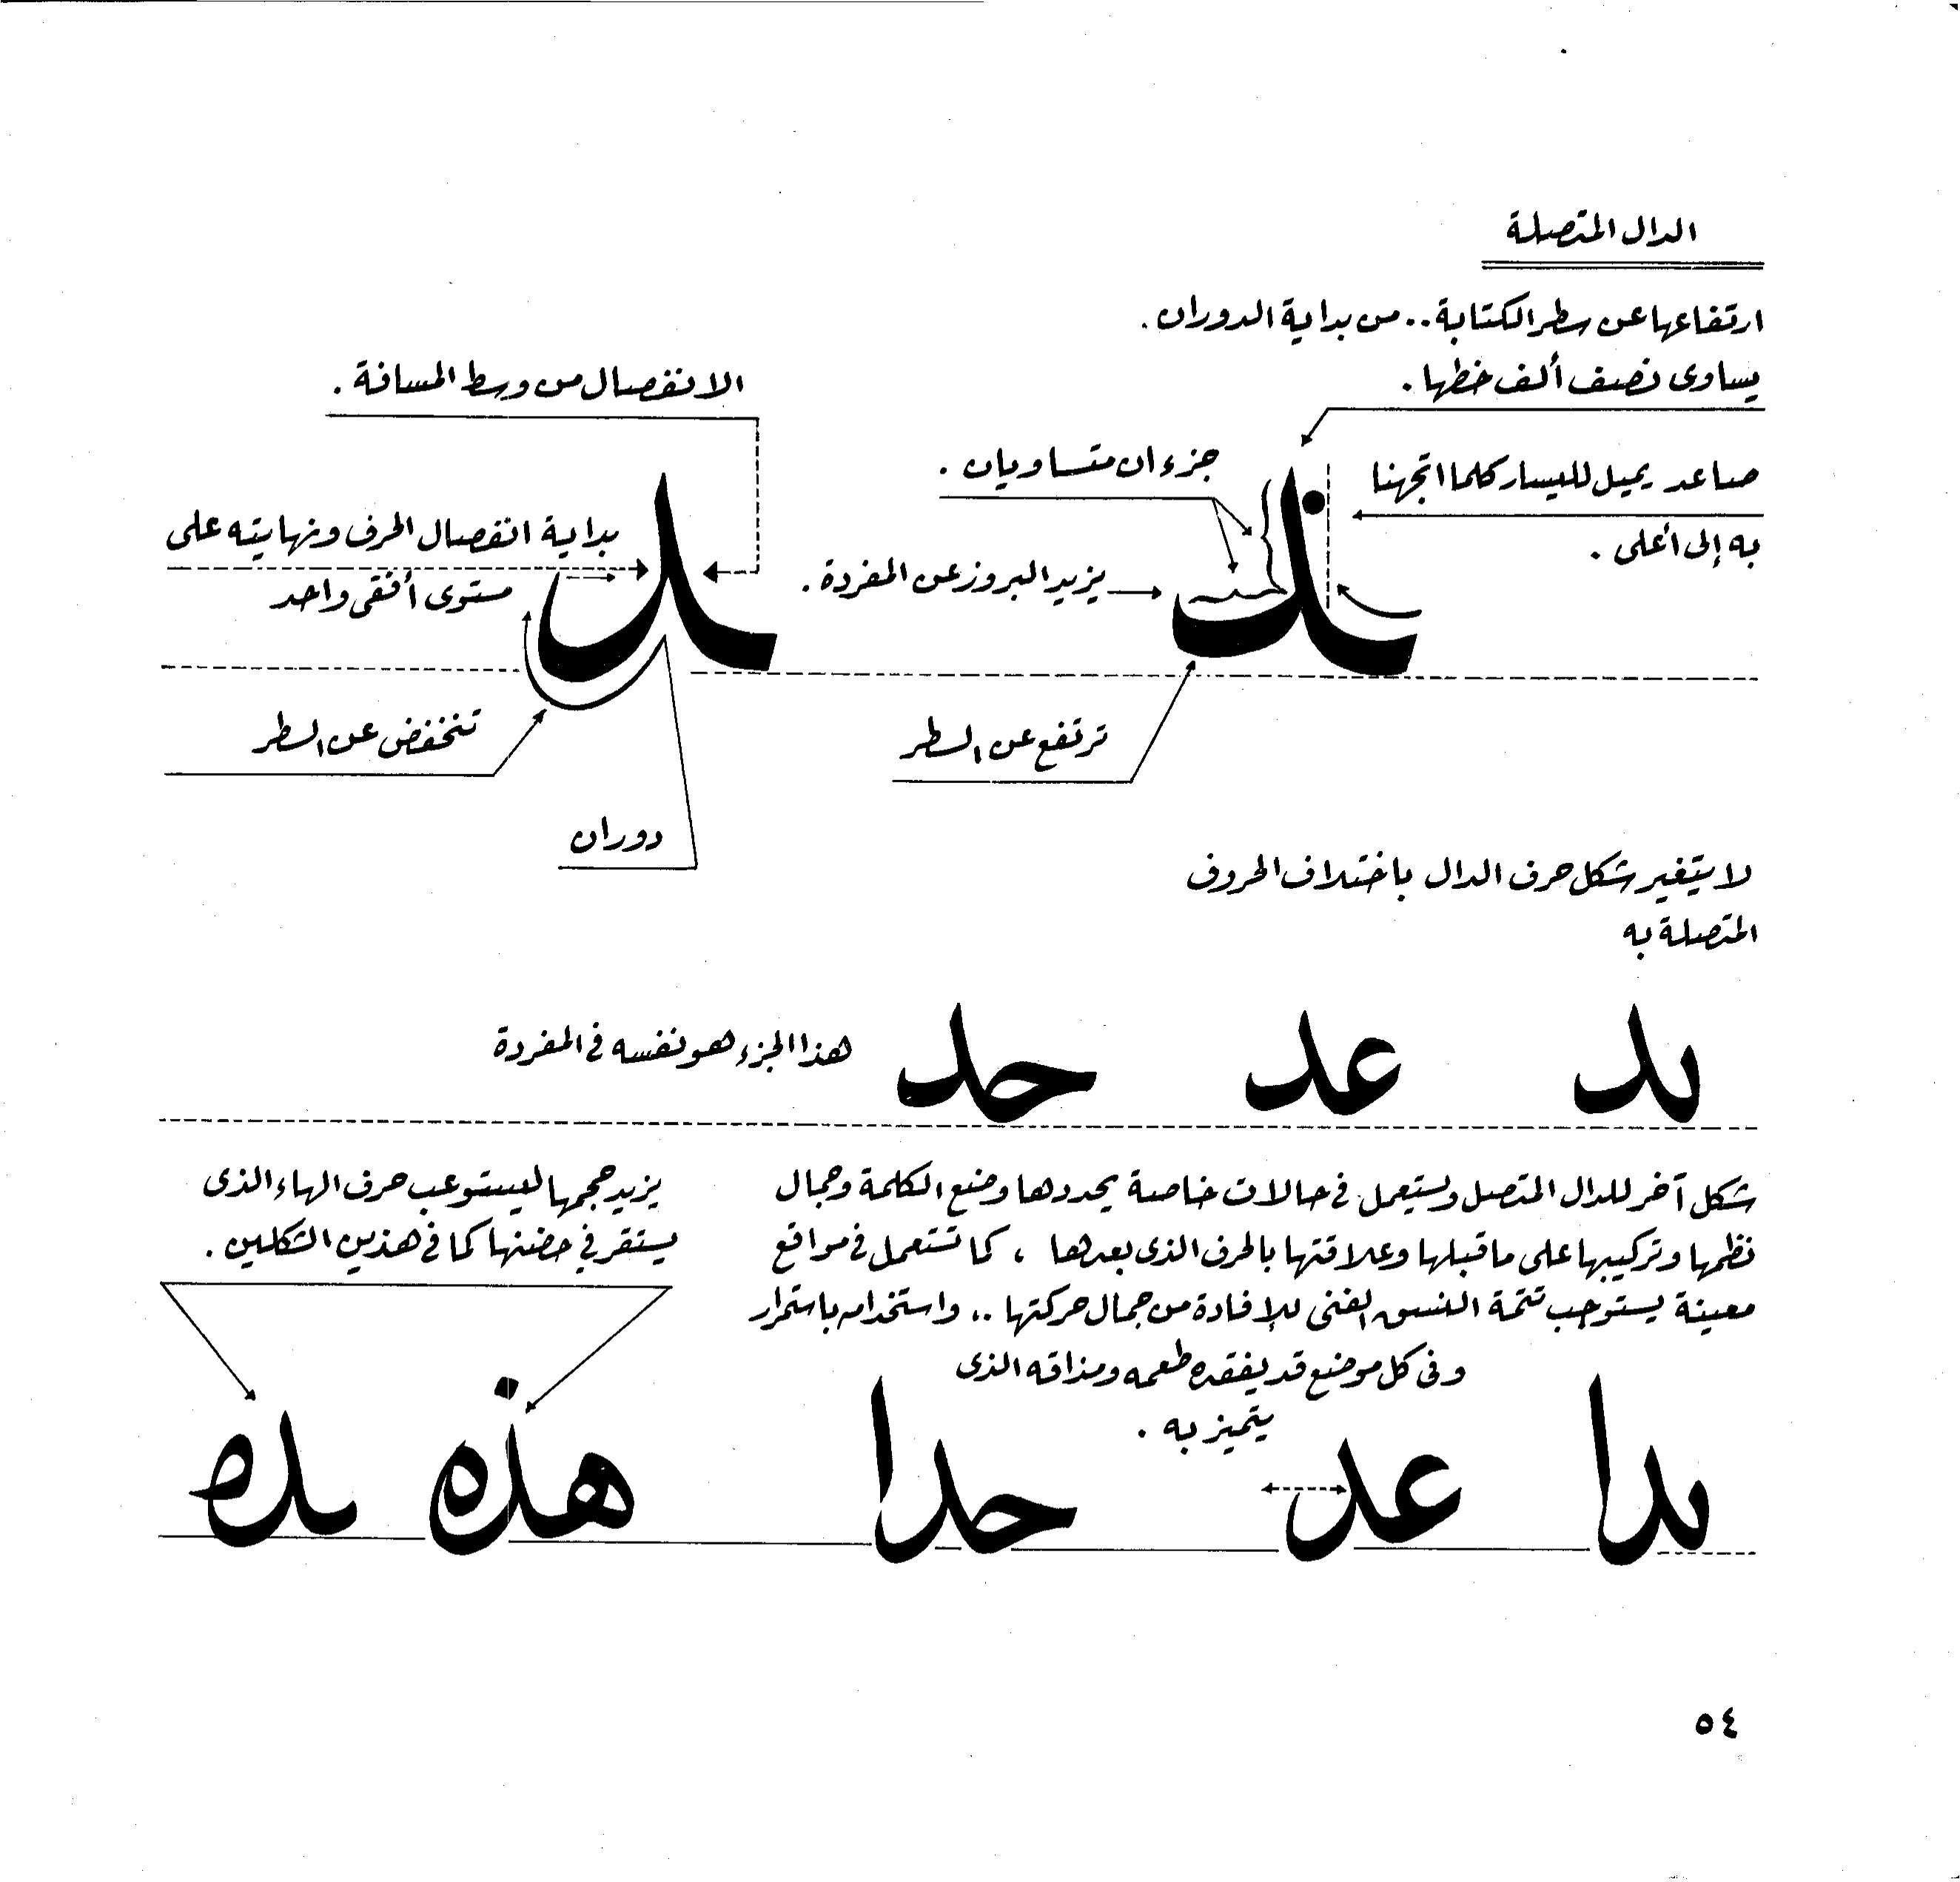 الدال المتصلة
ارتفاعها عن سطر الكتابة.. من بداية الدوران.
يساوى نصف ألف خطها.
صاعد يميل لليسار كلما اتجهنا
به إلى أعلى.
جزءان متساويان.
يزيد البروز عن المفردة.
ترتفع عن السطر
الانفصال من وسط المسافة.
بداية انفصال الحرف ونهايته على
مستوى أفقى واحد
تنخفض عن السطر
دوران
لا يتغير شكل حرف الدال باختلاف الحروف
المتصلة به
بد عد حد
هذا الجزء هو نفسه فى المفردة
شكل آخر للدال المتصل ويستعمل فى حالات خاصة يحددها وضع الكلمة وجمال
نظمها وتركيبها على ما قبلها وعلاقتها بالحرف الذى بعدها ، كما تستعمل فى مواقع
معينة يستوجب تتمة النسق الفنى للإفادة من جمال حركتها .. واستخدامه باستمرار
وفى كل موضع قد يفقده طعمه ومذاقه الذى
يتميز به .
يزيد حجمها ليستوعب حرف الهاء الذى
يستقر فى حضنها كما فى هذين الشكلين .
بدا عد حدا هذه ده
٥٤